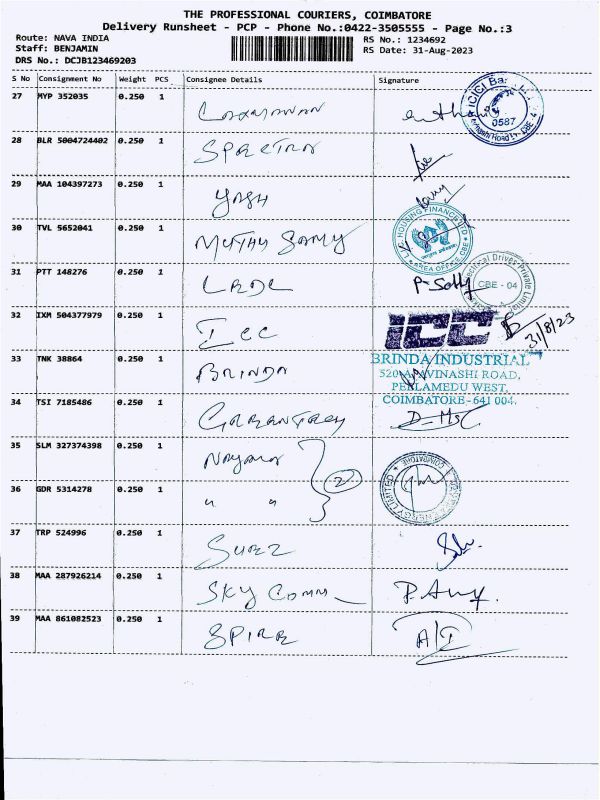 THE PROFESSIONAL COURIERS, COIMBATORE
Delivery Runsheet - PCP - Phone No.:0422-3505555 - Page No.:3
Route: NAVA INDIA RS No.: 1234692
Staff: BENJAMIN RS Date: 31-Aug-2023
DRS No.: DCJB123469203
S No Consignment No Weight PCS Consignee Details Signature
27 MYP 352035 0.250 1 ICICI Ba 0587
28 BLR 5004724402 0.250 1 SPECTRA
29 MAA 104397273 0.250 1 YASH
30 TVL 5652041 0.250 1 MUTHU SAMY HOUSING FINANCE LTD AREA OFFICE CBE
31 PTT 148276 0.250 1 Drives Private Limit CBE - 04
32 IXM 504377979 0.250 1 ICC ICC 31/8/23
33 TNK 38864 0.250 1 BRINDA BRINDA INDUSTRIAL
520 AVINASHI ROAD,
PEELAMEDU WEST,
COIMBATORE - 641 004.
34 TSI 7185486 0.250 1
35 SLM 327374398 0.250 1 2 ENERGY LIMITED COIMBATORE
36 GDR 5314278 0.250 1 " "
37 TRP 524996 0.250 1
38 MAA 287926214 0.250 1 SKY COMM
39 MAA 861082523 0.250 1 SPIRE